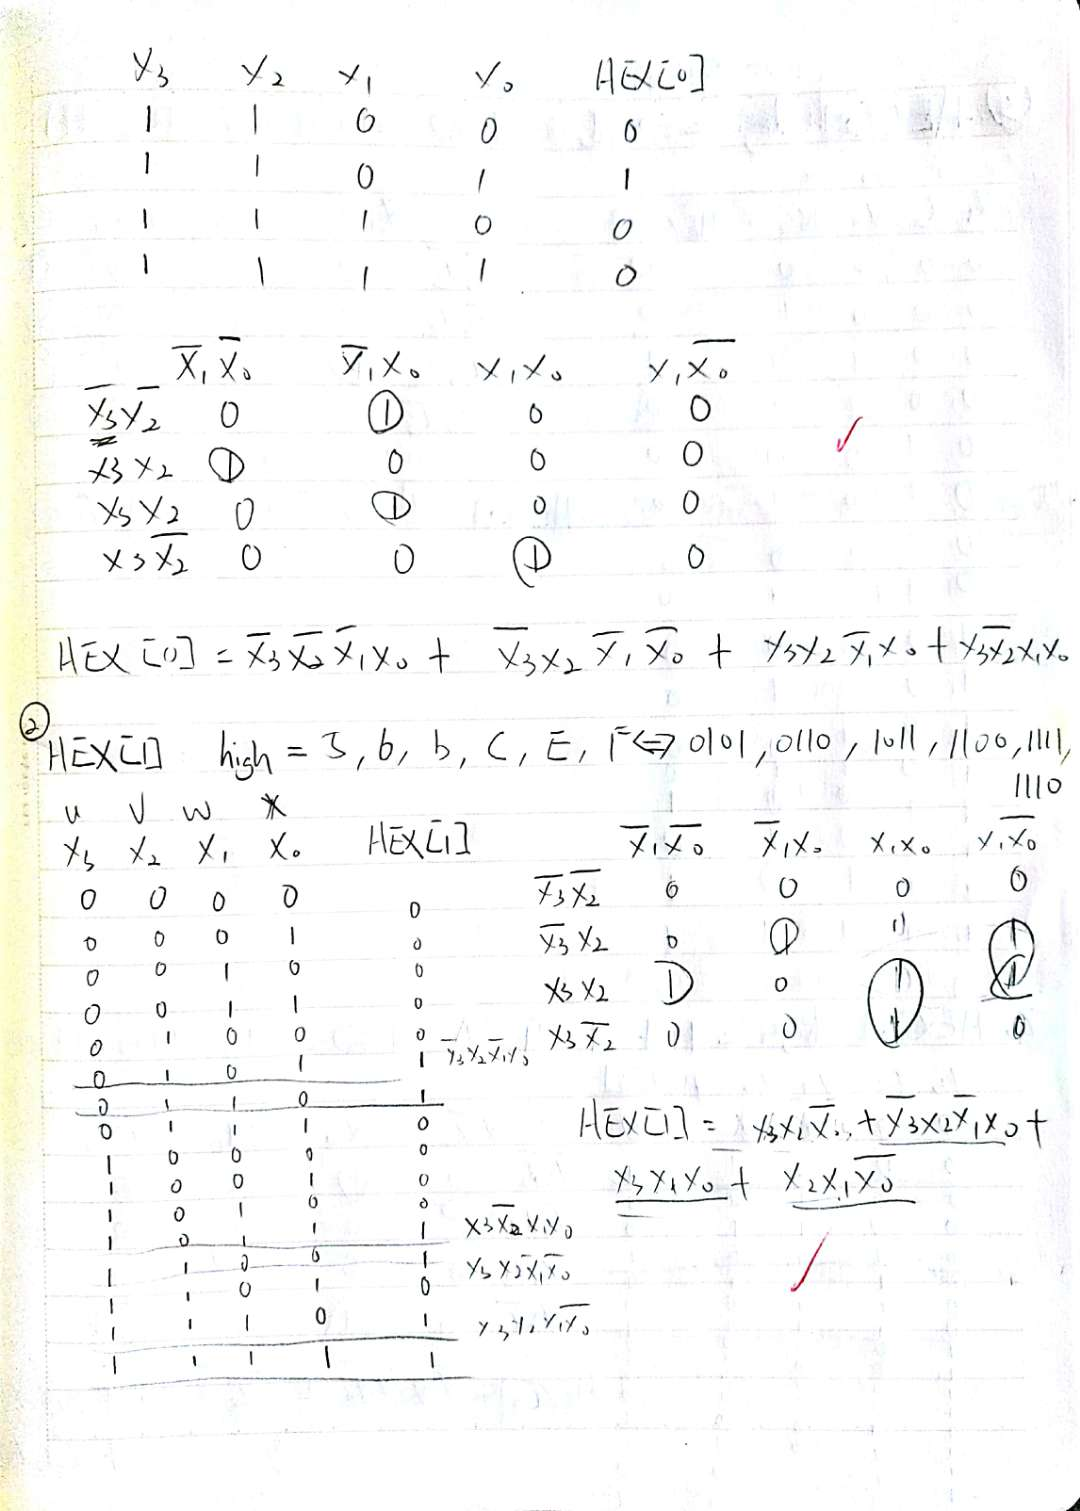 X₃ X₂ X₁ X₀ HEX[0]
1 1 0 0 0
1 1 0 1 1
1 1 1 0 0
1 1 1 1 0
X̅₁X̅₀ X̅₁X₀ X₁X₀ X₁X̅₀
X̅₃X̅₂ 0 1 0 0
X₃X₂ 1 0 0 0
X₃X₂ 0 1 0 0
X₃X̅₂ 0 0 1 0
HEX[0] = X̅₃X̅₂X̅₁X₀ + X̅₃X₂X̅₁X̅₀ + X₃X₂X̅₁X₀ + X₃X̅₂X₁X₀
② HEX[1] high = 5, 6, b, C, E, F ⇔ 0101, 0110, 1011, 1100, 1111,
1110
u v w x
X₃ X₂ X₁ X₀ HEX[1]
0 0 0 0 0
0 0 0 1 0
0 0 1 0 0
0 0 1 1 0
0 1 0 0 0
0 1 0 1 1 X̅₃X₂X̅₁X₀
0 1 1 0 1
0 1 1 1 0
1 0 0 0 0
1 0 0 1 0
1 0 1 0 0
1 0 1 1 1 X₃X̅₂X₁X₀
1 1 0 0 1 X₃X₂X̅₁X̅₀
1 1 0 1 0
1 1 1 0 1 X₃X₂X₁X̅₀
1 1 1 1 1
X̅₁X̅₀ X̅₁X₀ X₁X₀ X₁X̅₀
X̅₃X̅₂ 0 0 0 0
X̅₃X₂ 0 1 1
X₃X₂ 1 0 1 1
X₃X̅₂ 0 0 1 0
HEX[1] = X₃X₂X̅₀ + X̅₃X₂X̅₁X₀ +
X₃X₁X₀ + X₂X₁X̅₀